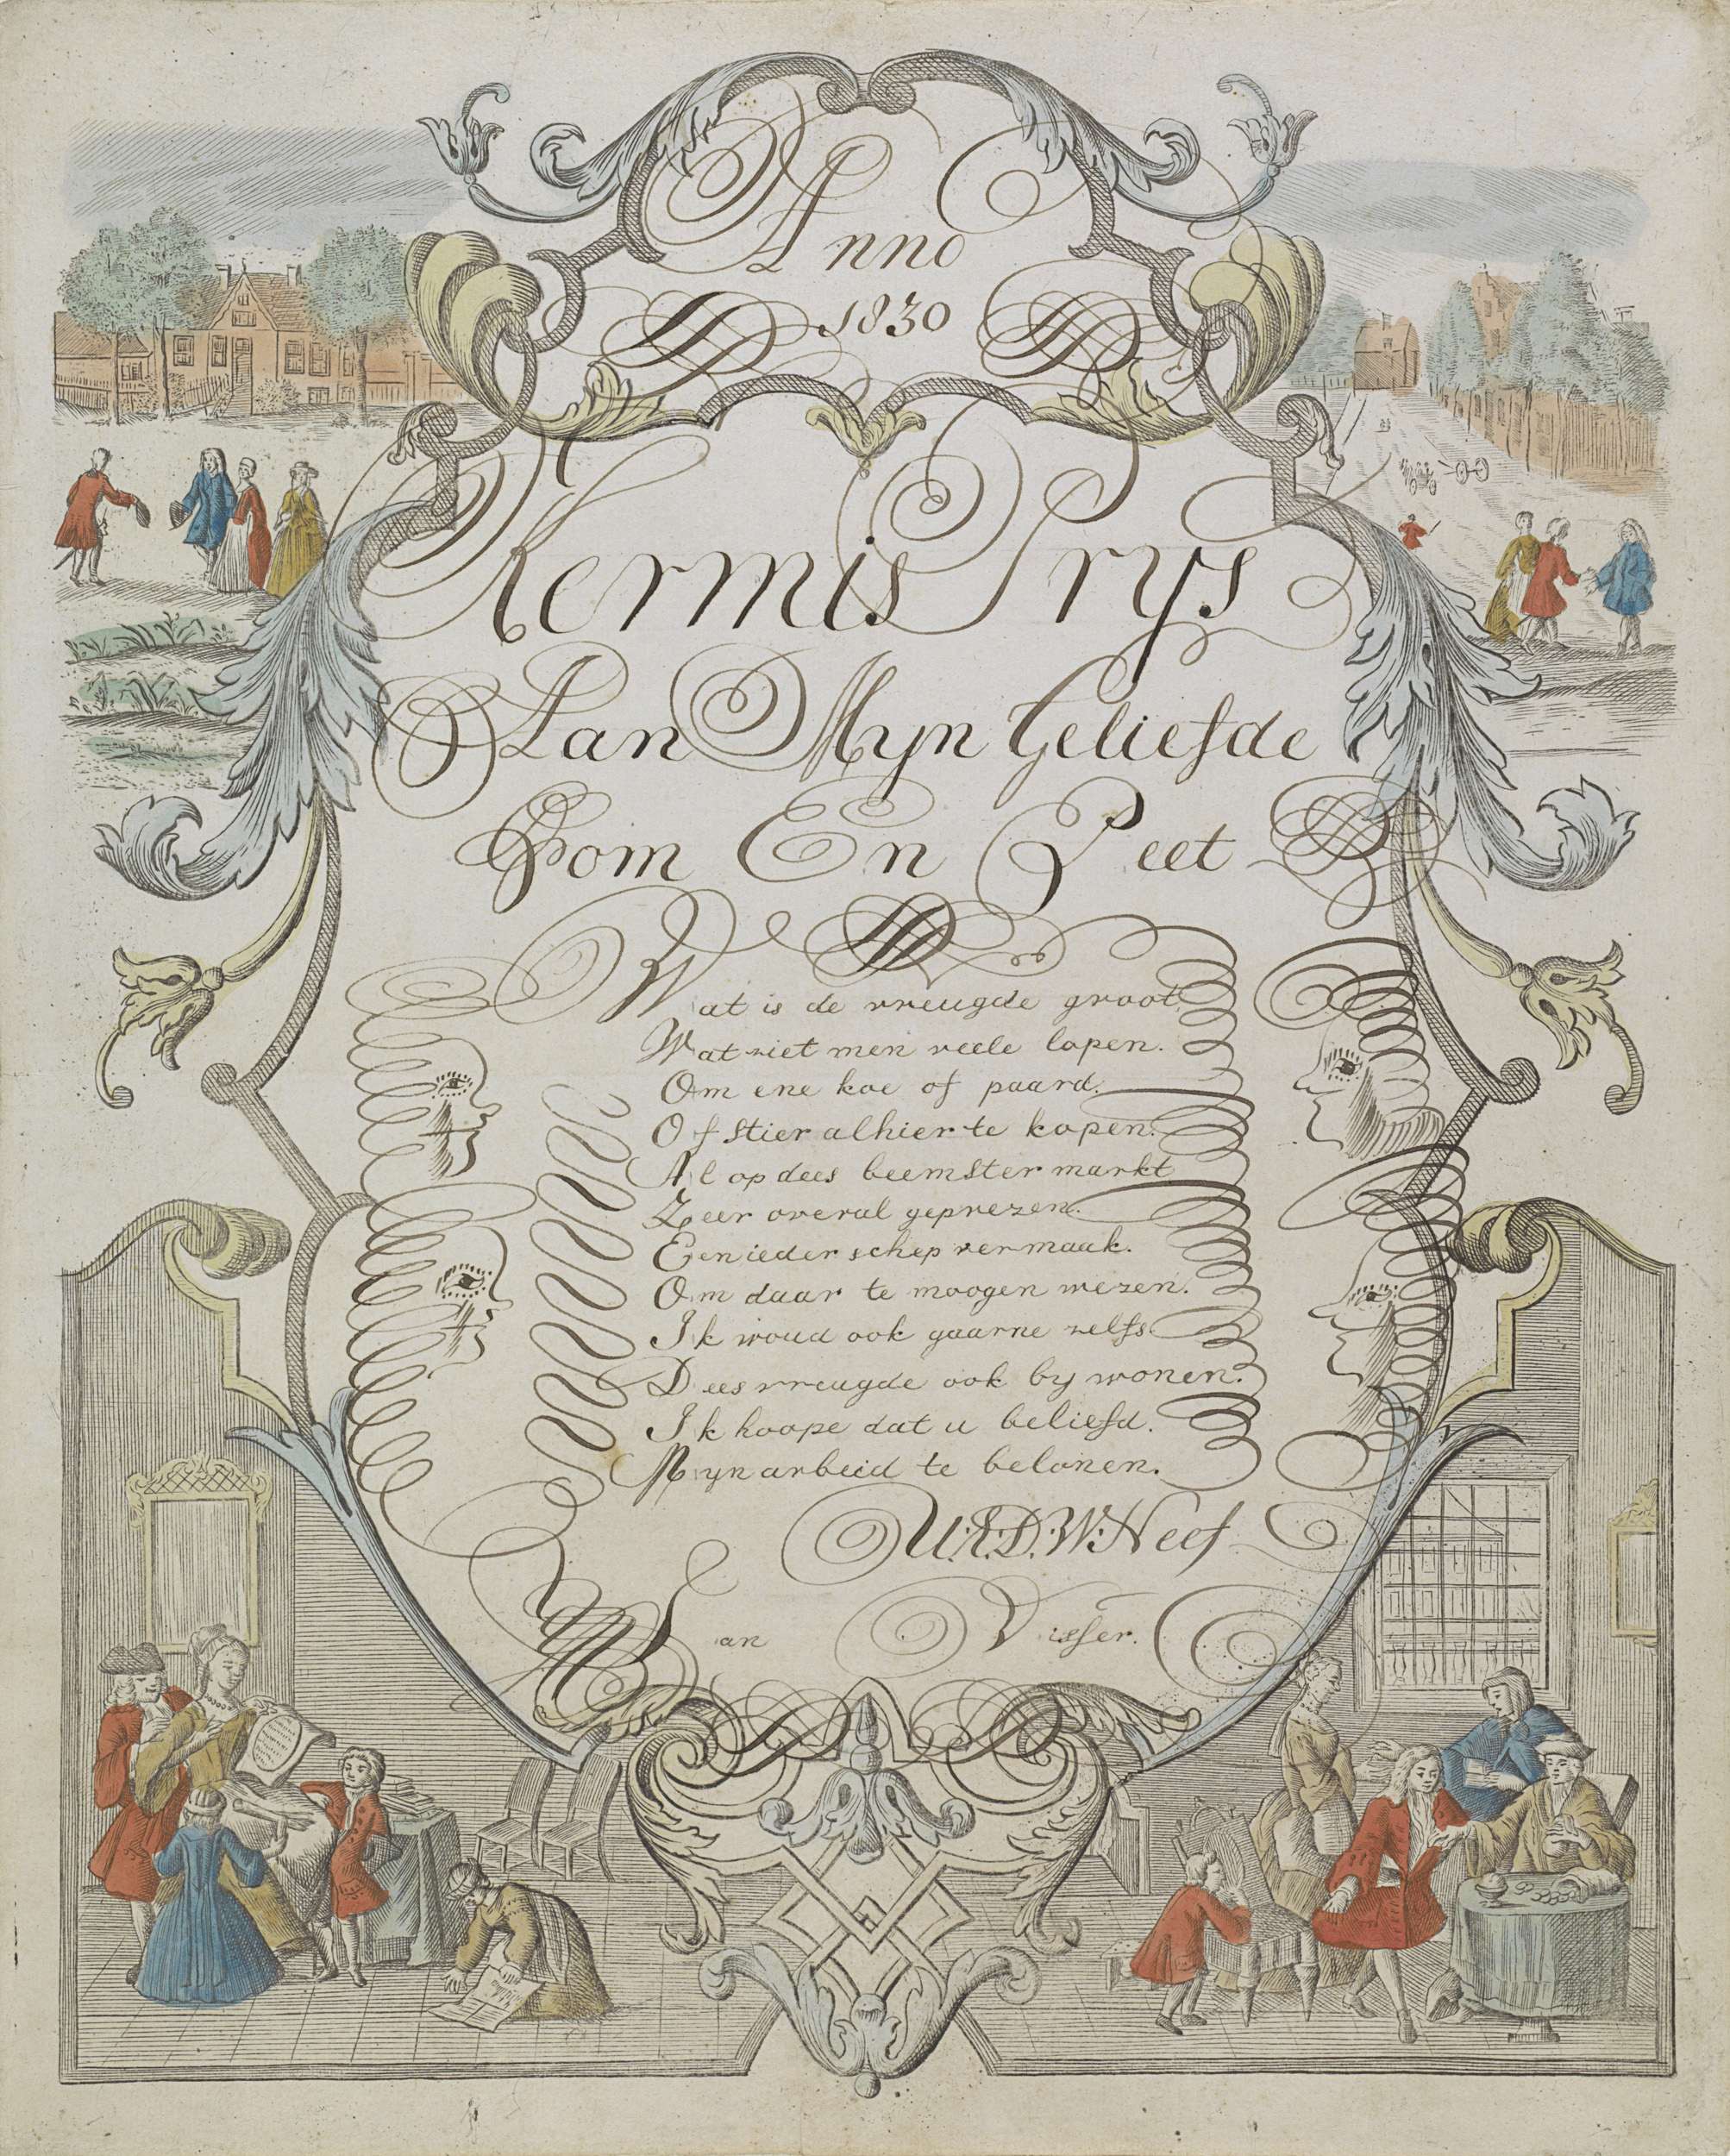 Anno
1830
Kermis Prys
Aan Myn Geliefde
Oom En Peet
Wat is de vreugde groot
Wat ziet men veele lopen.
Om ene koe of paard.
Of stier alhier te kopen.
Al op dees beemster markt
Zeer overal geprezen.
Een ieder schep vermaak.
Om daar te moogen wezen.
Ik woud ook gaarne zelfs
Dees vreugde ook by wonen.
Ik hoope dat u beliefd.
Myn arbeid te belonen.
U:E:D:W:Neef
Jan Visser.